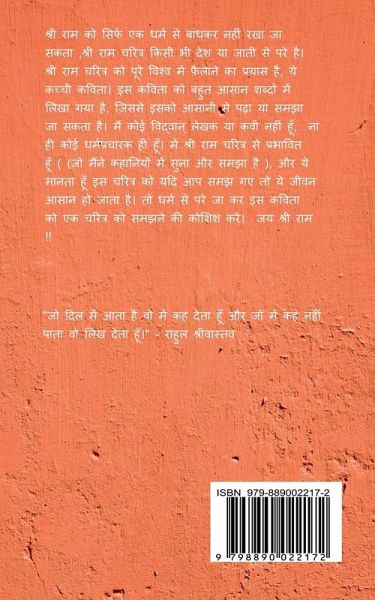 श्री राम को सिर्फ एक धर्म से बांधकर नहीं रखा जा
सकता ,श्री राम चरित्र किसी भी देश या जाती से परे है।
श्री राम चरित्र को पूरे विश्व में फैलाने का प्रयास है, ये
कच्ची कविता। इस कविता को बहुत आसान शब्दों में
लिखा गया है, जिससे इसको आसानी से पढ़ा या समझा
जा सकता है। मैं कोई विद्वान् लेखक या कवी नहीं हूँ, ना
ही कोई धर्मप्रचारक ही हूँ। में श्री राम चरित्र से प्रभावित
हूँ ( (जो मैंने कहानियों में सुना और समझा है ), और ये
मानता हूँ इस चरित्र को यदि आप समझ गए तो ये जीवन
आसान हो जाता है। तो धर्म से परे जा कर इस कविता
को एक चरित्र को समझने की कोशिश करें। जय श्री राम
!!
"जो दिल में आता है वो में कह देता हूँ और जो में कह नहीं
पाता वो लिख देता हूँ।" – राहुल श्रीवास्तव
ISBN 979-889002217-2
9 798890 022172